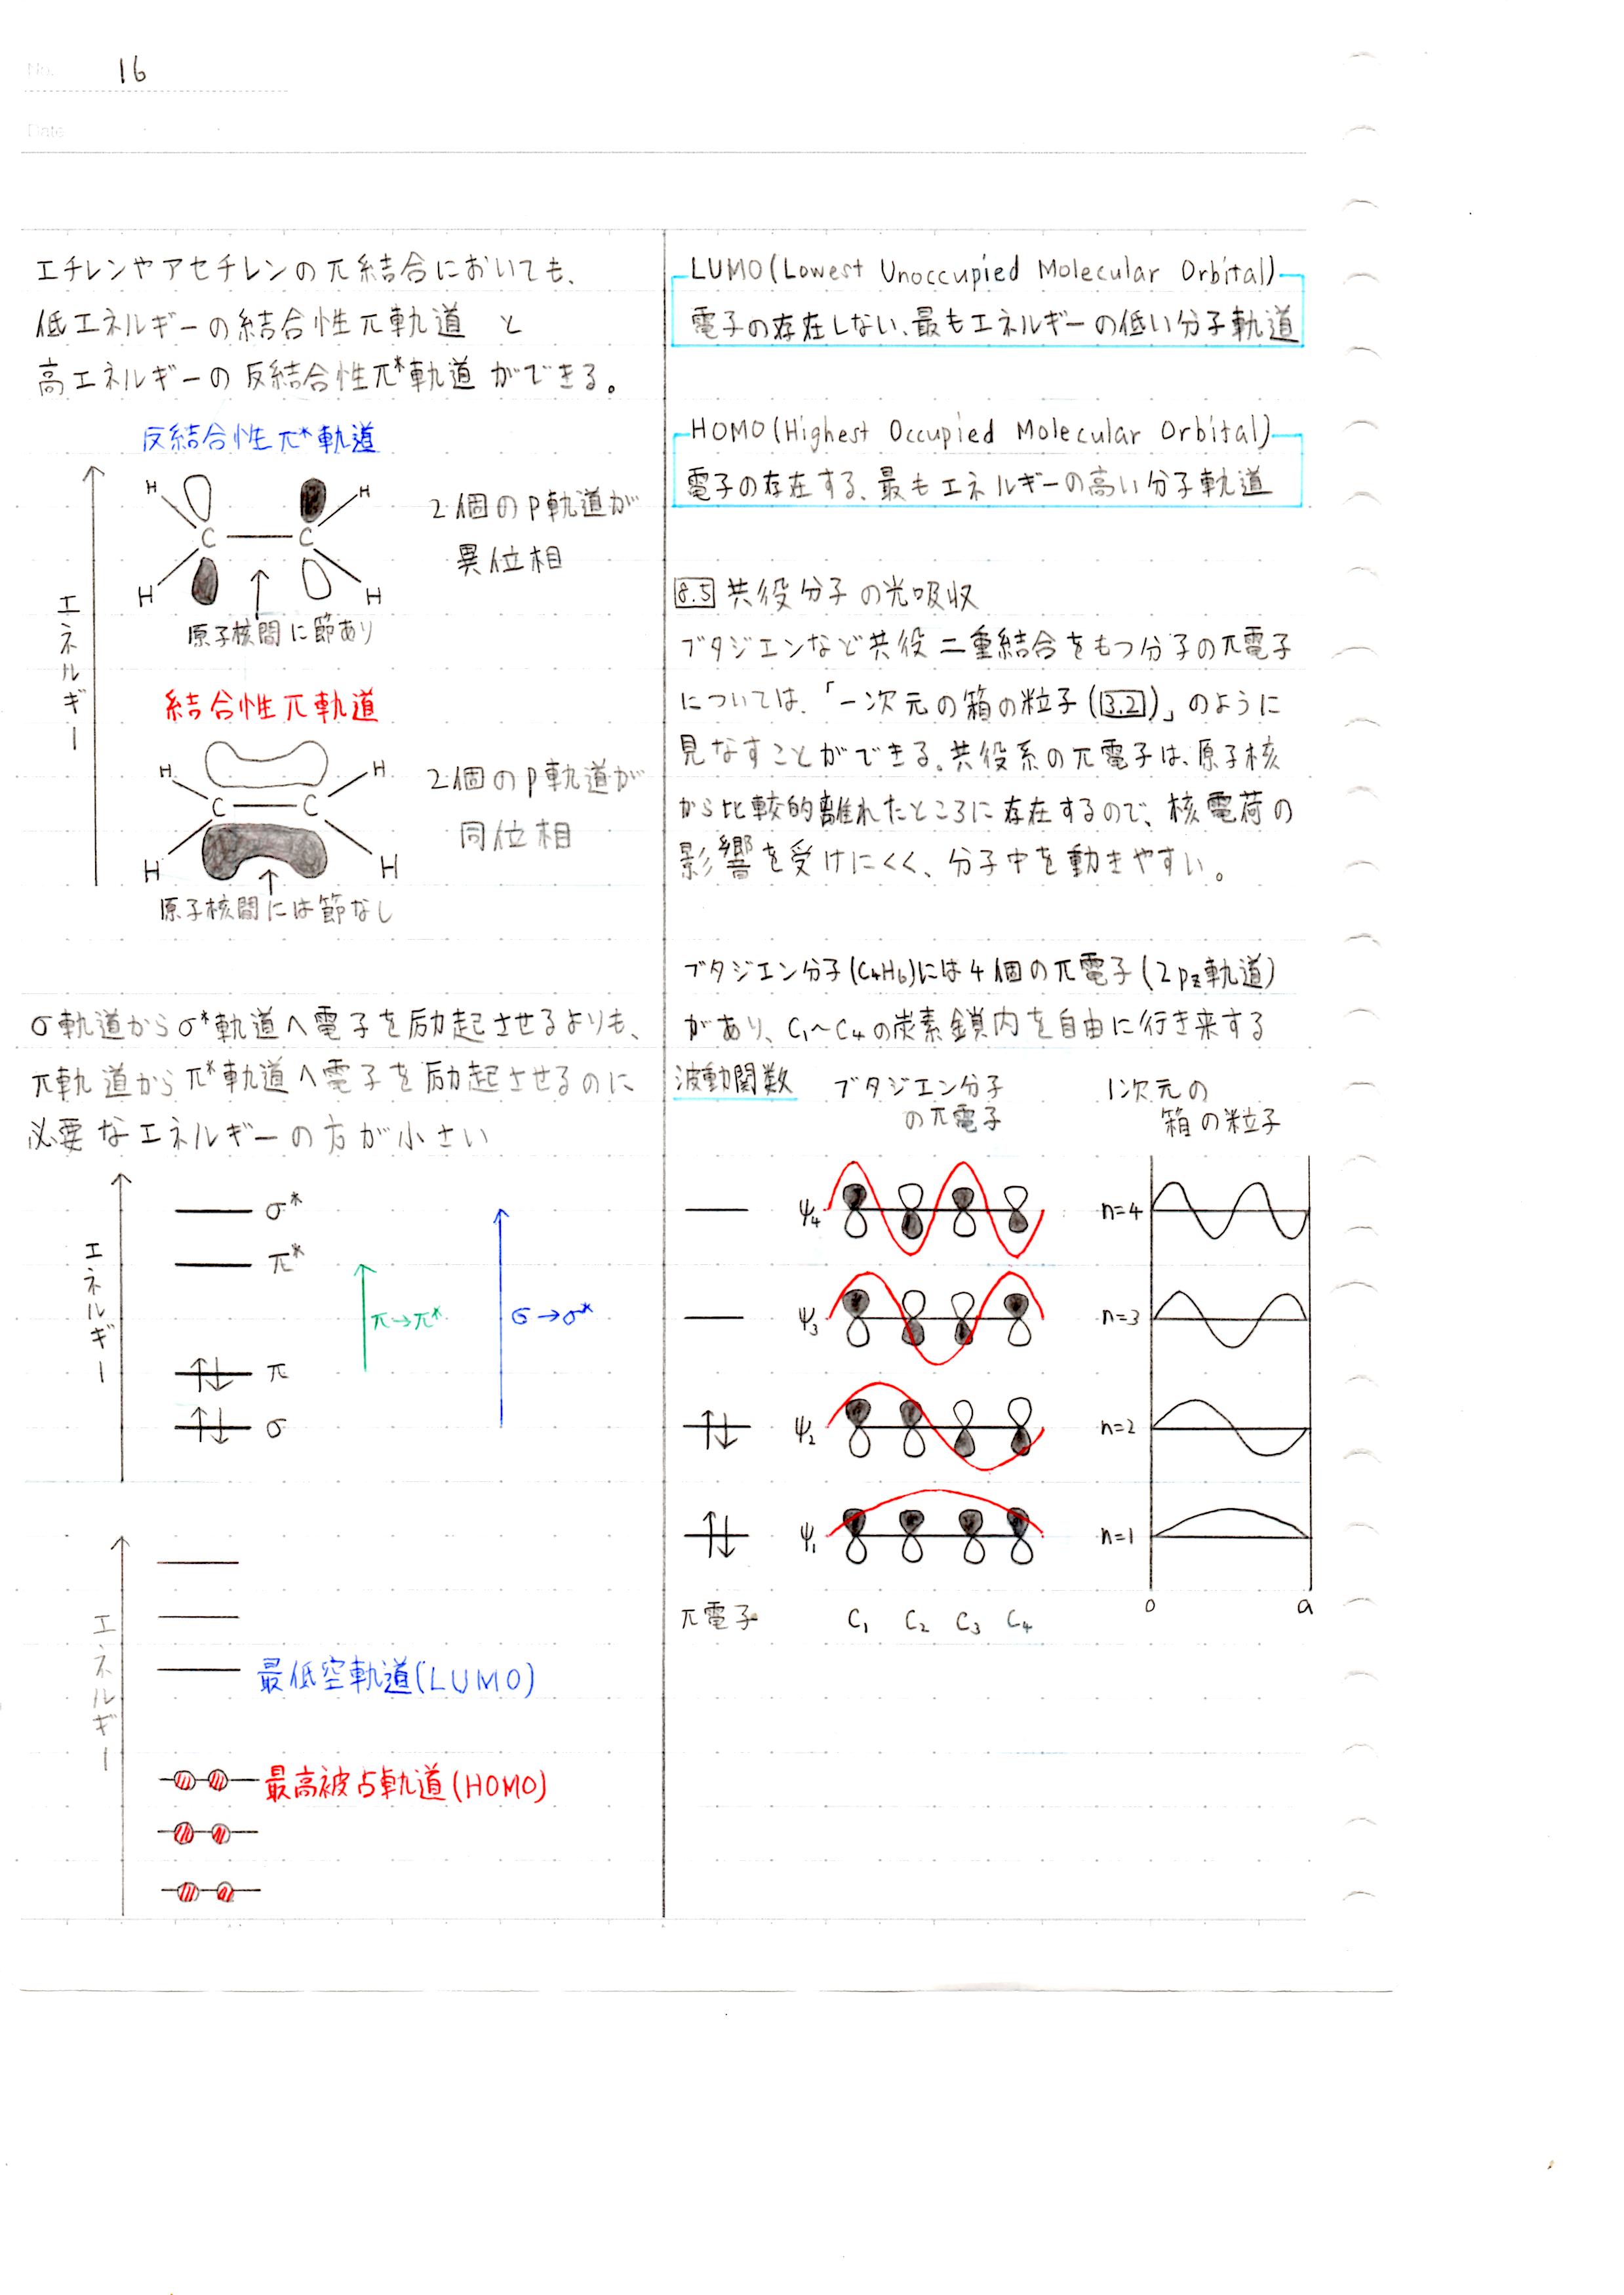 No. 16
Date
エチレンやアセチレンのπ結合においても、
低エネルギーの結合性π軌道 と
高エネルギーの反結合性π*軌道ができる。
反結合性π*軌道
H
H
C
C
H
H
2個のp軌道が
異位相
原子核間に節あり
エネルギー
結合性π軌道
H
H
C
C
H
H
2個のp軌道が
同位相
原子核間には節なし
σ軌道からσ*軌道へ電子を励起させるよりも、
π軌道からπ*軌道へ電子を励起させるのに
必要なエネルギーの方が小さい
エネルギー
σ*
π*
π
σ
π→π*
σ→σ*
エネルギー
最低空軌道(LUMO)
最高被占軌道(HOMO)
LUMO(Lowest Unoccupied Molecular Orbital)
電子の存在しない、最もエネルギーの低い分子軌道
HOMO(Highest Occupied Molecular Orbital)
電子の存在する、最もエネルギーの高い分子軌道
8.5 共役分子の光吸収
ブタジエンなど共役二重結合をもつ分子のπ電子
については、「一次元の箱の粒子(3.2)」のように
見なすことができる。共役系のπ電子は、原子核
から比較的離れたところに存在するので、核電荷の
影響を受けにくく、分子中を動きやすい。
ブタジエン分子(C₄H₆)には4個のπ電子(2pz軌道)
があり、C₁~C₄の炭素鎖内を自由に行き来する
波動関数
ブタジエン分子
のπ電子
1次元の
箱の粒子
ψ₄ n=4
ψ₃ n=3
ψ₂ n=2
ψ₁ n=1
π電子 C₁ C₂ C₃ C₄ 0 a